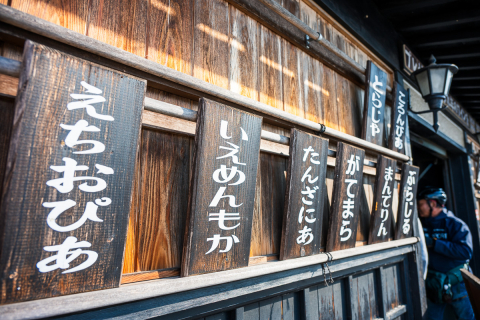 えちおぴあ
いえめんもか
たんざにあ
がてまら
まんてりん
ぶらじる
とらじゃ
ころんびあ